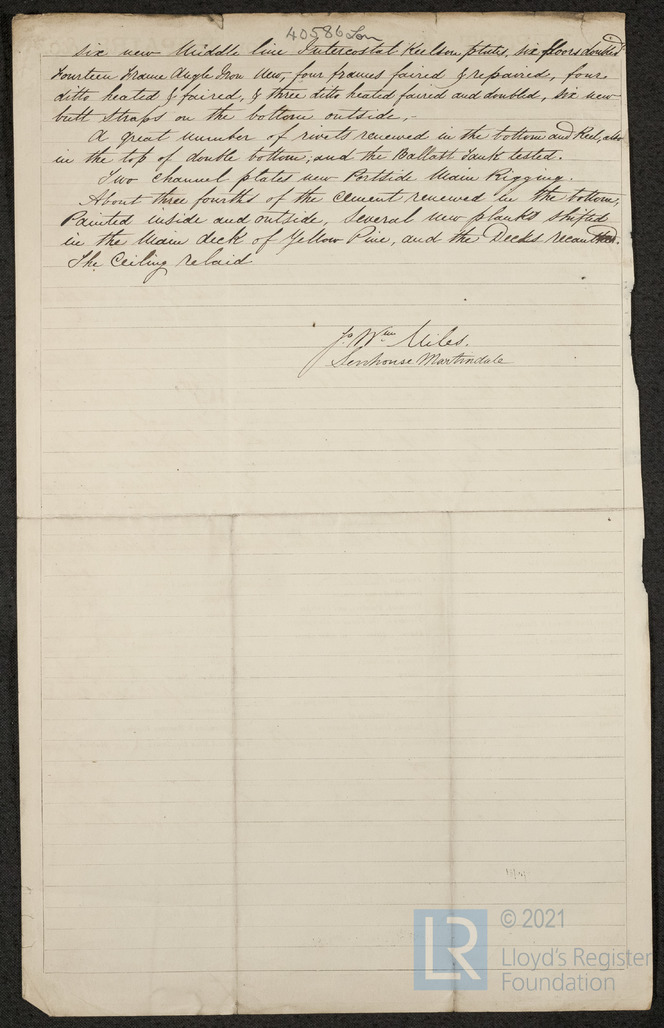 40586 Lon
six new Middle line Intercostal Keelson plates, six floors doubled
Fourteen Frame Angle Iron New, four frames faired & repaired, four
ditto heated & faired, & three ditto heated faired and doubled, six new
butt straps on the bottom outside,-
A great number of rivets renewed in the bottom and Keel, also
in the top of double bottom; and the Ballast Tank tested.
Two Channel plates new Portside Main Rigging.
About three fourths of the cement renewed in the bottom,
Painted inside and outside, Several new planks shifted
in the Main deck of Yellow Pine, and the Decks recaulked.
The Ceiling relaid
Wm Miles.
Senhouse Martindale
LR
© 2021
Lloyd's Register
Foundation